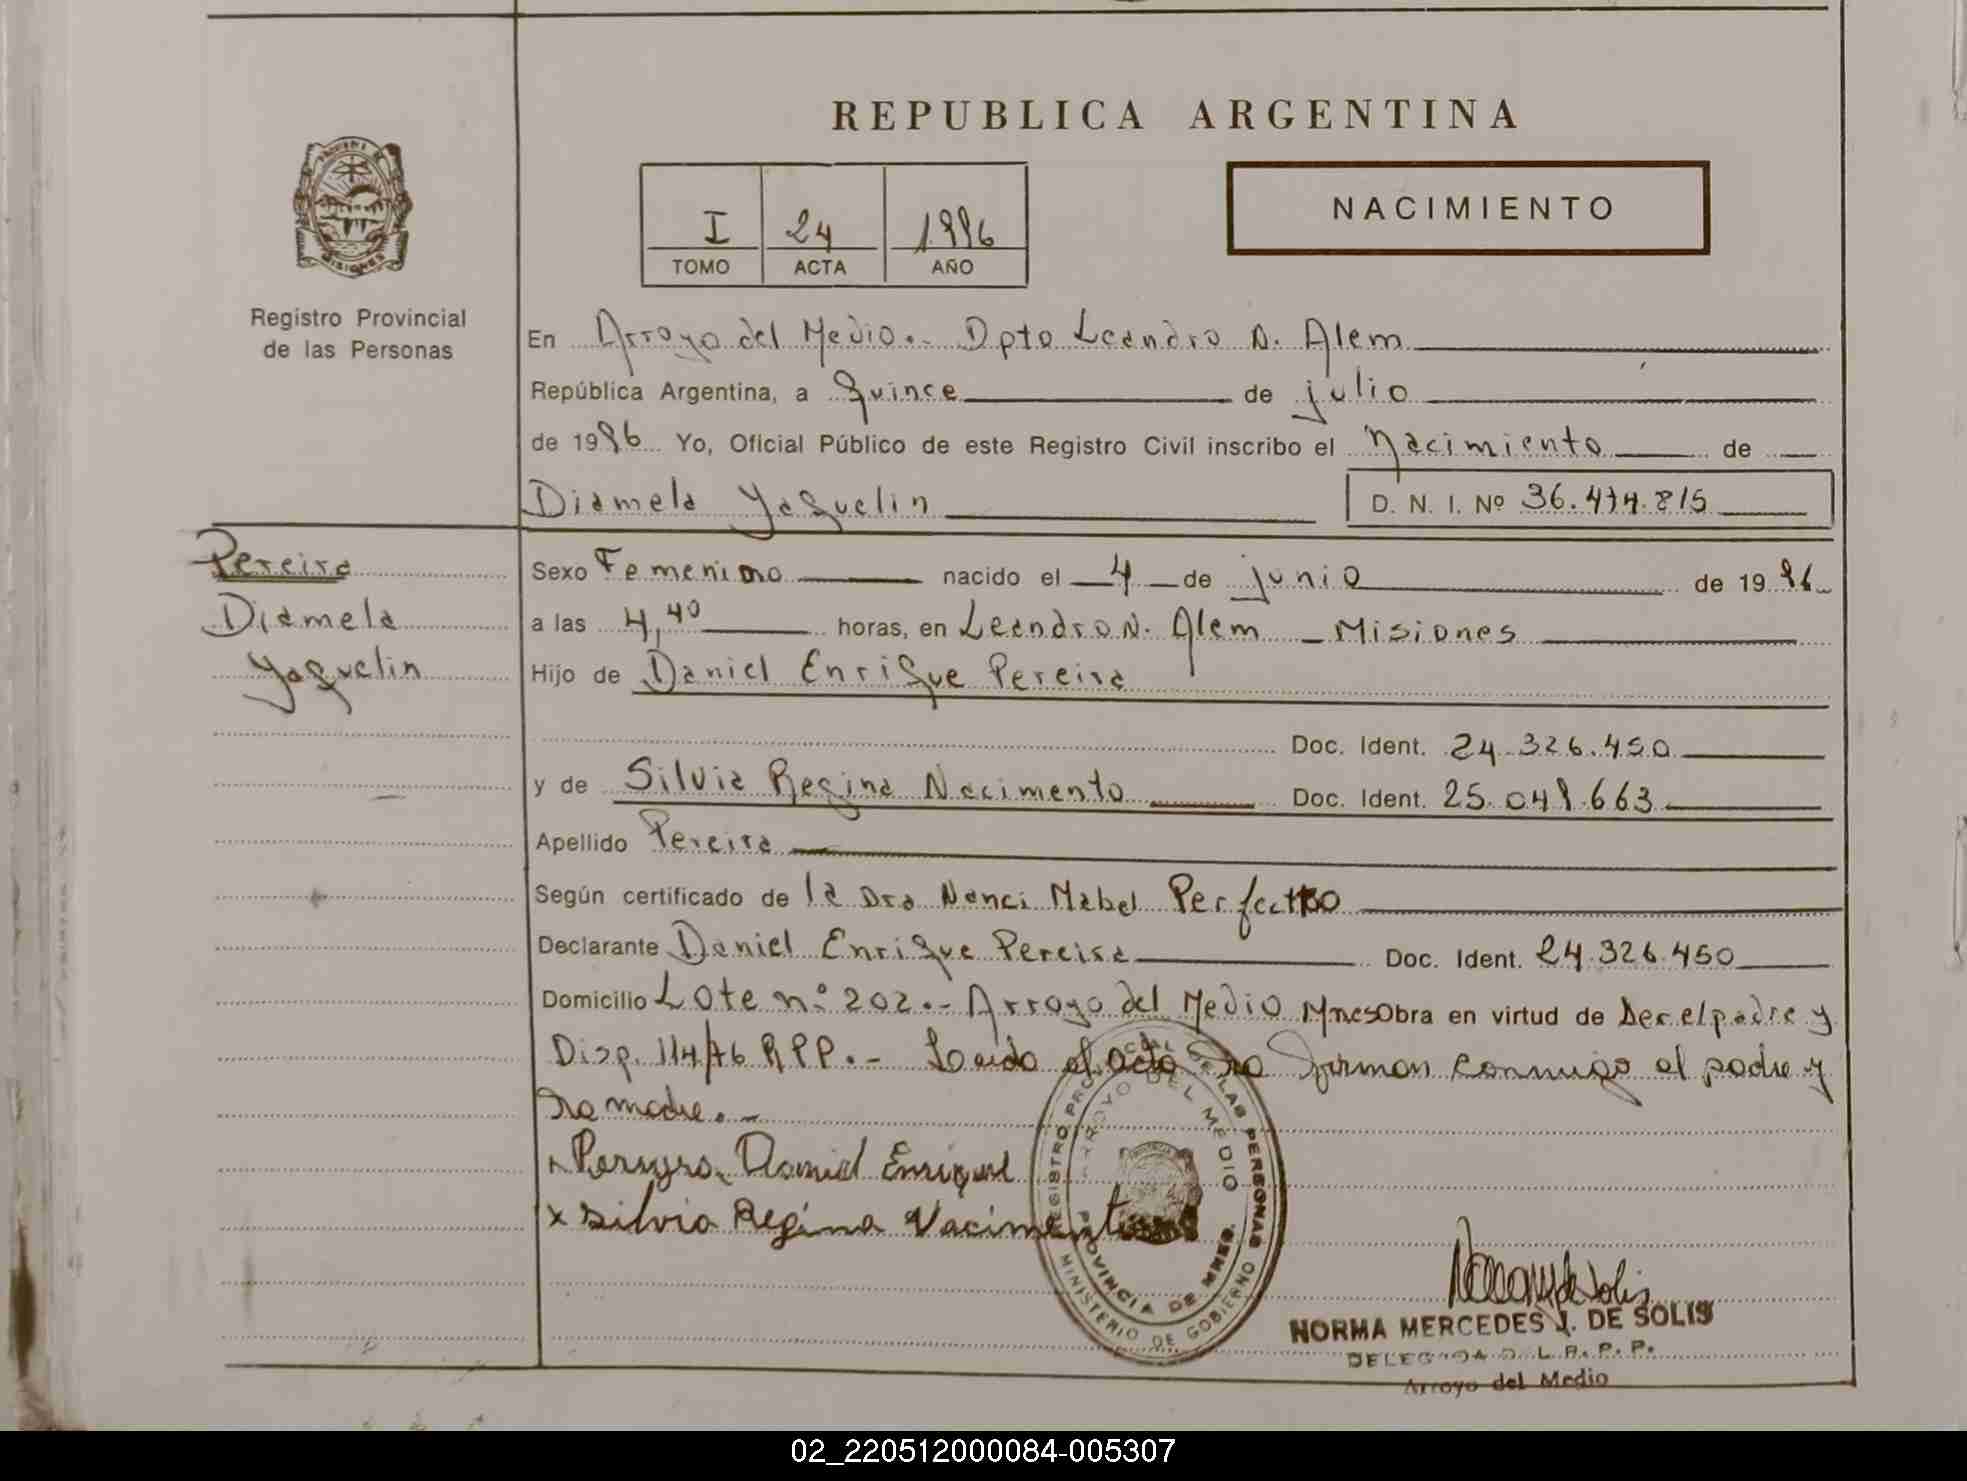 REPUBLICA ARGENTINA
NACIMIENTO
I 24 1996
TOMO ACTA AÑO
Registro Provincial
de las Personas
En Arroyo del Medio.- Dpto Leandro N. Alem
República Argentina, a Quince de julio
de 1996 Yo, Oficial Público de este Registro Civil inscribo el Nacimiento de
Diamela Yaquelin D. N. I. Nº 36.474.815
Pereira
Diamela
Yaquelin
Sexo Femenino nacido el 4 de junio de 1996
a las 4,40 horas, en Leandro N. Alem - Misiones
Hijo de Daniel Enrique Pereira
Doc. Ident. 24.326.450
y de Silvia Regina Nacimento Doc. Ident. 25.048.663
Apellido Pereira
Según certificado de la Dra Nanci Mabel
Declarante Daniel Enrique Pereira Doc. Ident. 24.326.450
Domicilio Lote n.º 202.- Arroyo del Medio Mnes Obra en virtud de Ser el padre y
Disp. 114/76 RPP.- Leída el acta la firman conmigo el padre y
la madre.-
x Daniel Enrique
x Silvia Regina Nacimento
REGISTRO PROVINCIAL DE LAS PERSONAS
ARROYO DEL MEDIO
PROVINCIA DE MNES.
MINISTERIO DE GOBIERNO
NORMA MERCEDES J. DE SOLIS
DELEGADA D. L. R. P. P.
Arroyo del Medio
02_220512000084-005307